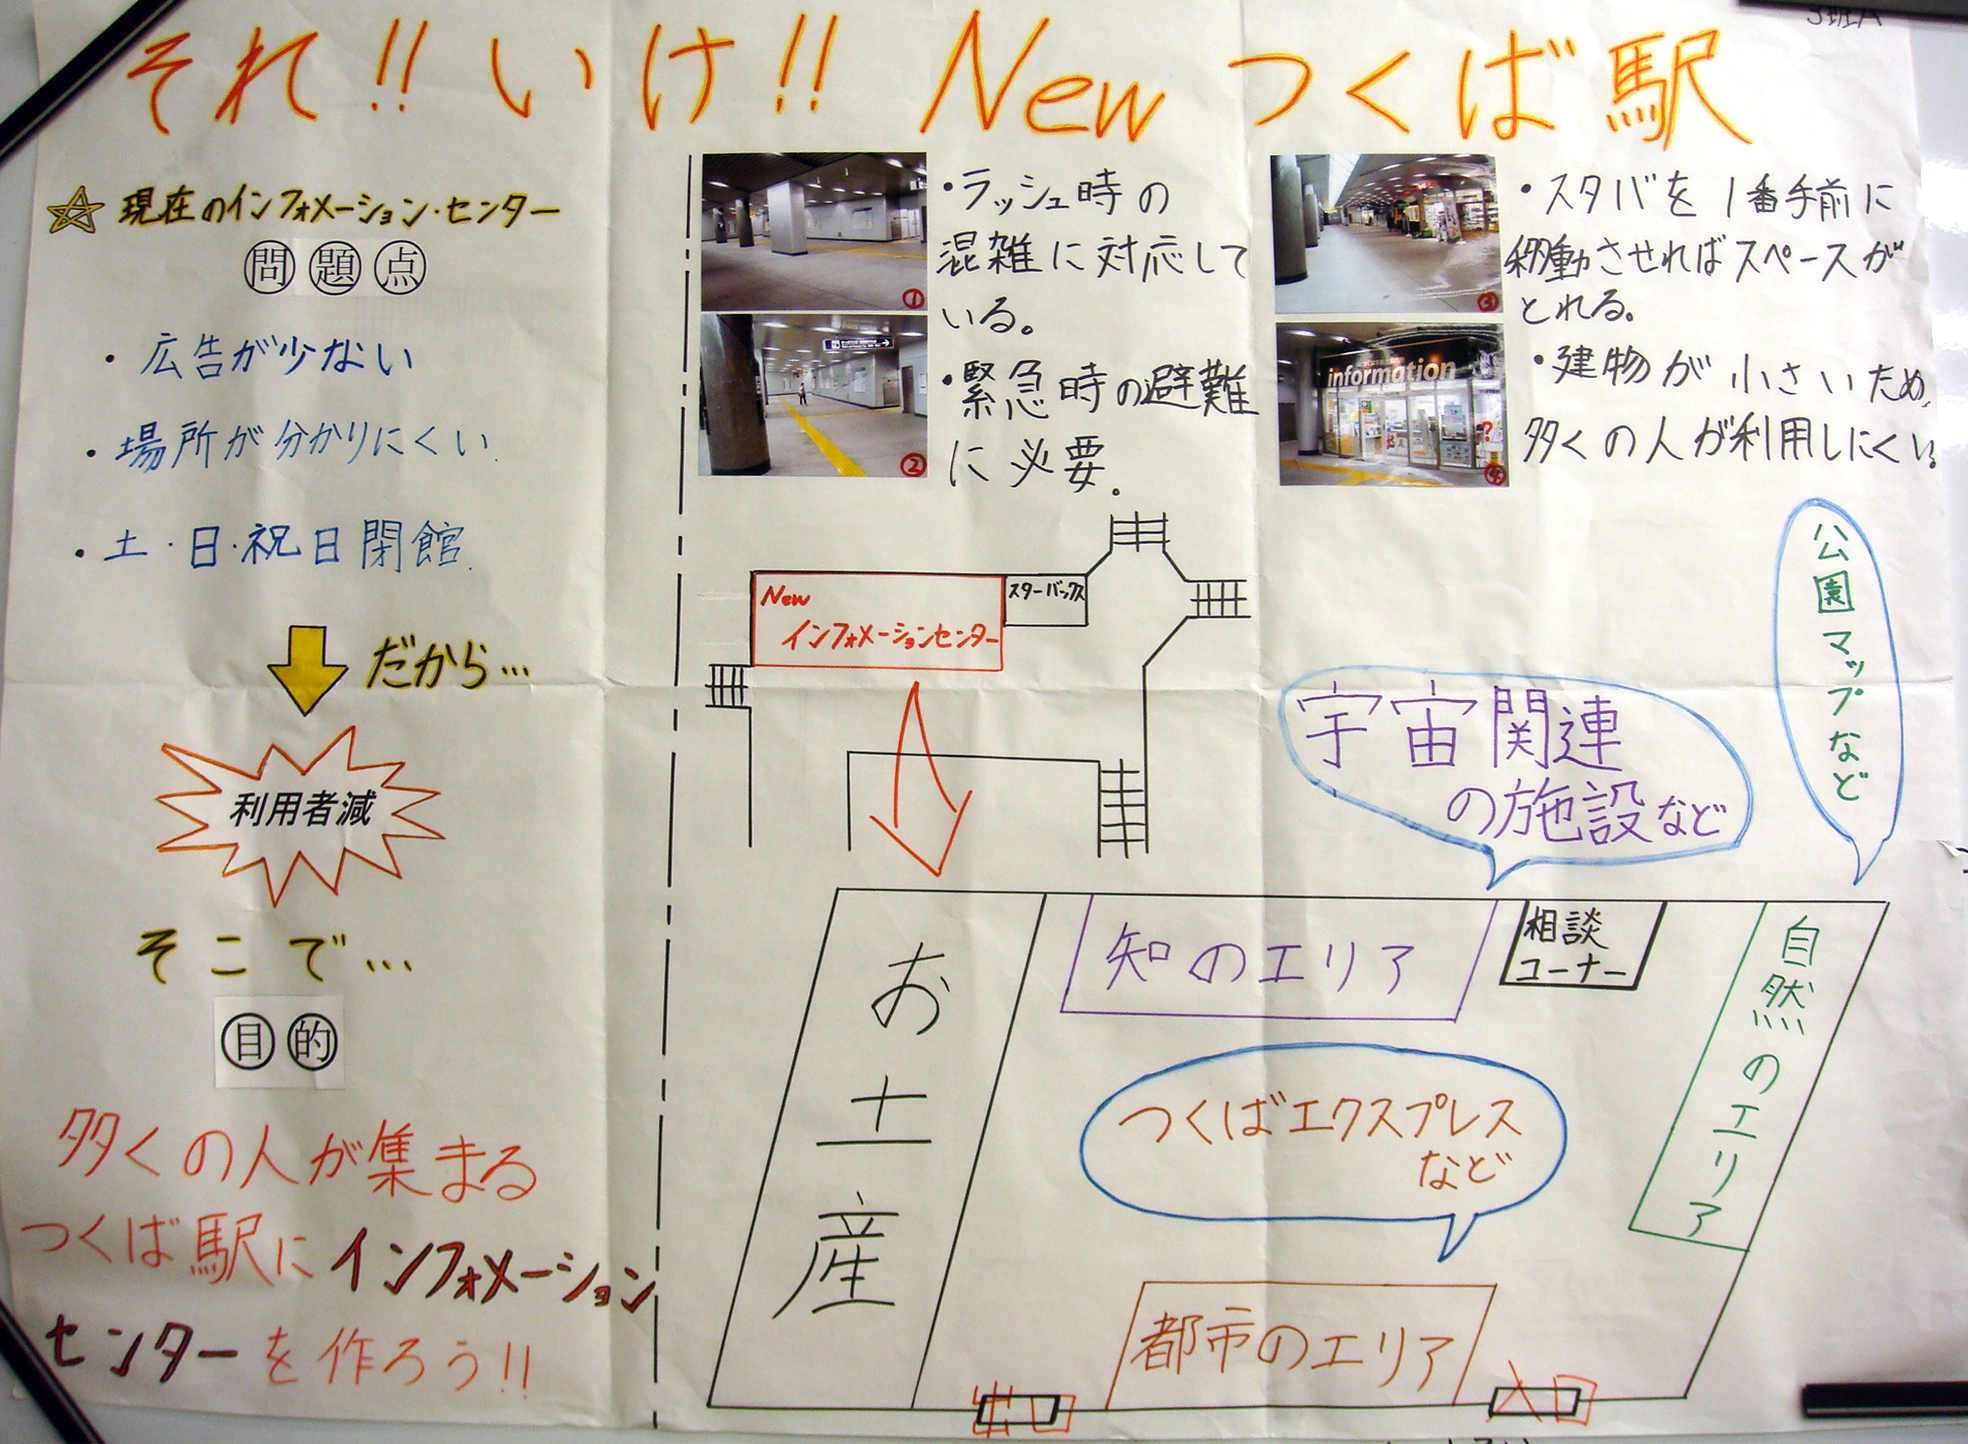 3班A
それ!!いけ!! New つくば駅
現在のインフォメーション・センター
問題点
・広告が少ない
・場所が分かりにくい.
・土・日・祝日閉館.
だから…
利用者減
そこで…
目的
多くの人が集まる
つくば駅にインフォメーション
センターを作ろう!!
①
②
・ラッシュ時の
混雑に対応して
いる。
・緊急時の避難
に必要.
③
information
?
④
・スタバを1番手前に
移動させればスペースが
とれる。
・建物が小さいため,
多くの人が利用しにくい。
New
インフォメーションセンター
スターバックス
公園マップなど
宇宙関連
の施設など
お土産
知のエリア
相談
コーナー
自然のエリア
つくばエクスプレス
など
都市のエリア
出口
入口